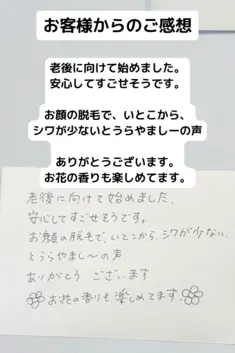 お客様からのご感想
老後に向けて始めました。
安心してすごせそうです。
お顔の脱毛で、いとこから、
シワが少ないとうらやましーの声
ありがとうございます。
お花の香りも楽しめてます。
老後に向けて始めました、
安心してすごせそうです。
お顔の脱毛で、いとこから、シワが少ない、
とうらやまし〜の声
ありがとう ございます
お花の香りも楽しめてます。